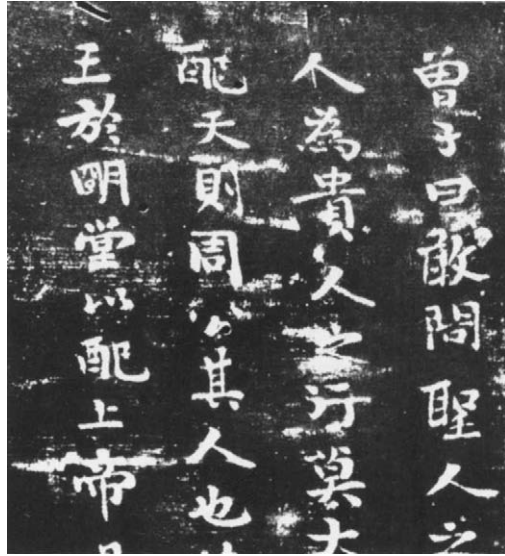 曾子曰敢問聖人之
人為貴人之行莫大
配天則周公其人也
王於明堂以配上帝是